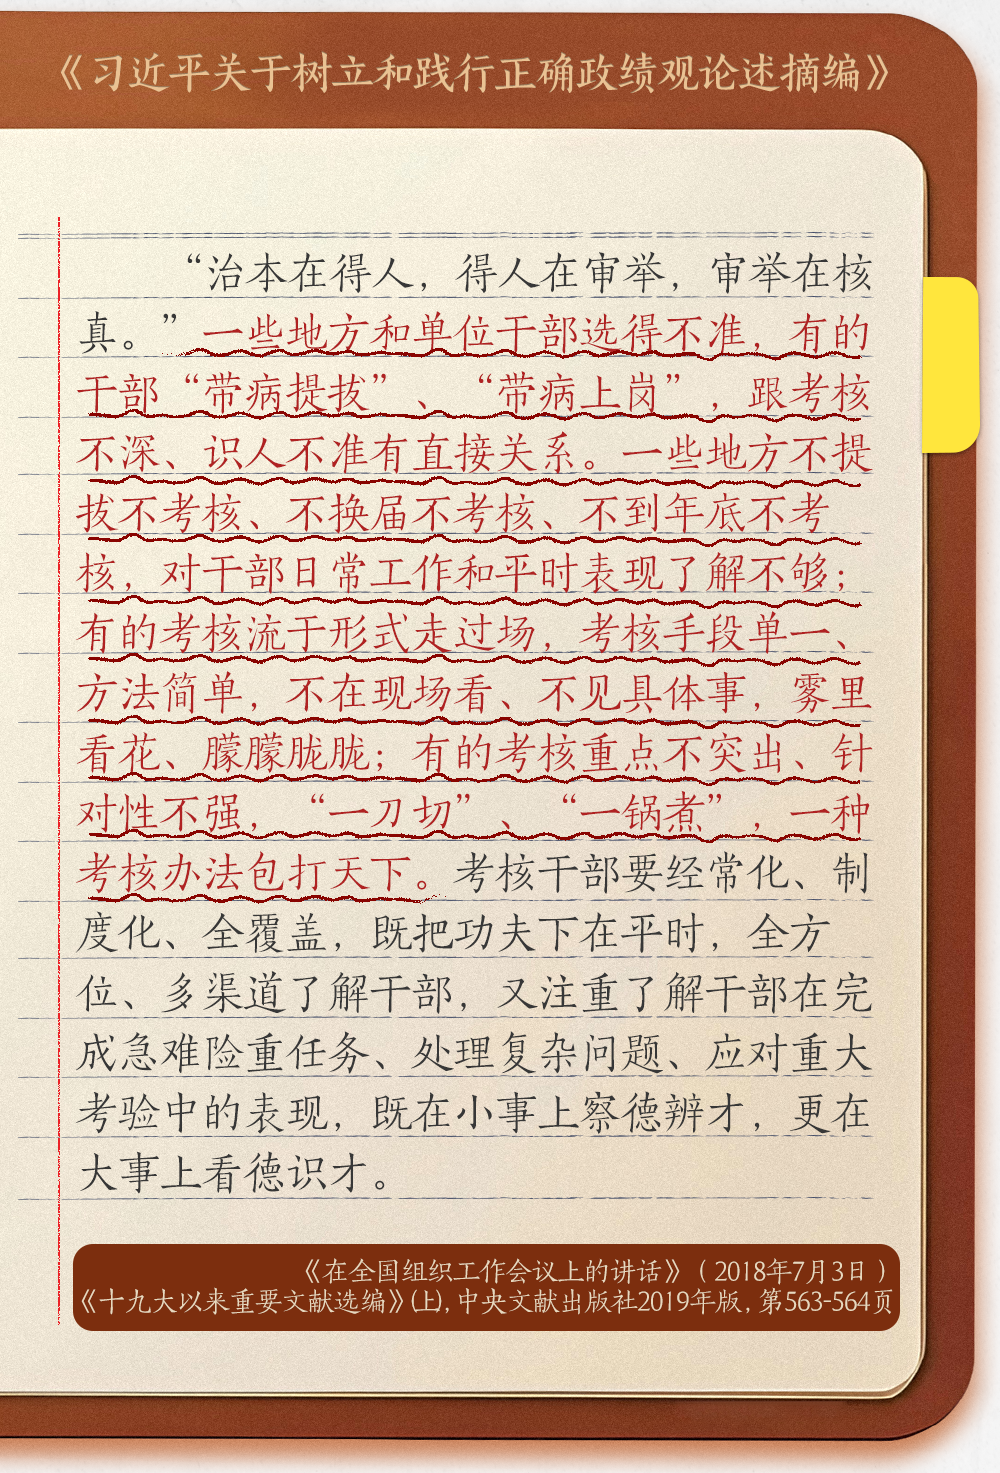 《习近平关于树立和践行正确政绩观论述摘编》
“治本在得人，得人在审举，审举在核
真。”一些地方和单位干部选得不准，有的
干部“带病提拔”、“带病上岗”，跟考核
不深、识人不准有直接关系。一些地方不提
拔不考核、不换届不考核、不到年底不考
核，对干部日常工作和平时表现了解不够；
有的考核流于形式走过场，考核手段单一、
方法简单，不在现场看、不见具体事，雾里
看花、朦朦胧胧；有的考核重点不突出、针
对性不强，“一刀切”、“一锅煮”，一种
考核办法包打天下。考核干部要经常化、制
度化、全覆盖，既把功夫下在平时，全方
位、多渠道了解干部，又注重了解干部在完
成急难险重任务、处理复杂问题、应对重大
考验中的表现，既在小事上察德辨才，更在
大事上看德识才。
《在全国组织工作会议上的讲话》（2018年7月3日）
《十九大以来重要文献选编》（上），中央文献出版社2019年版，第563-564页